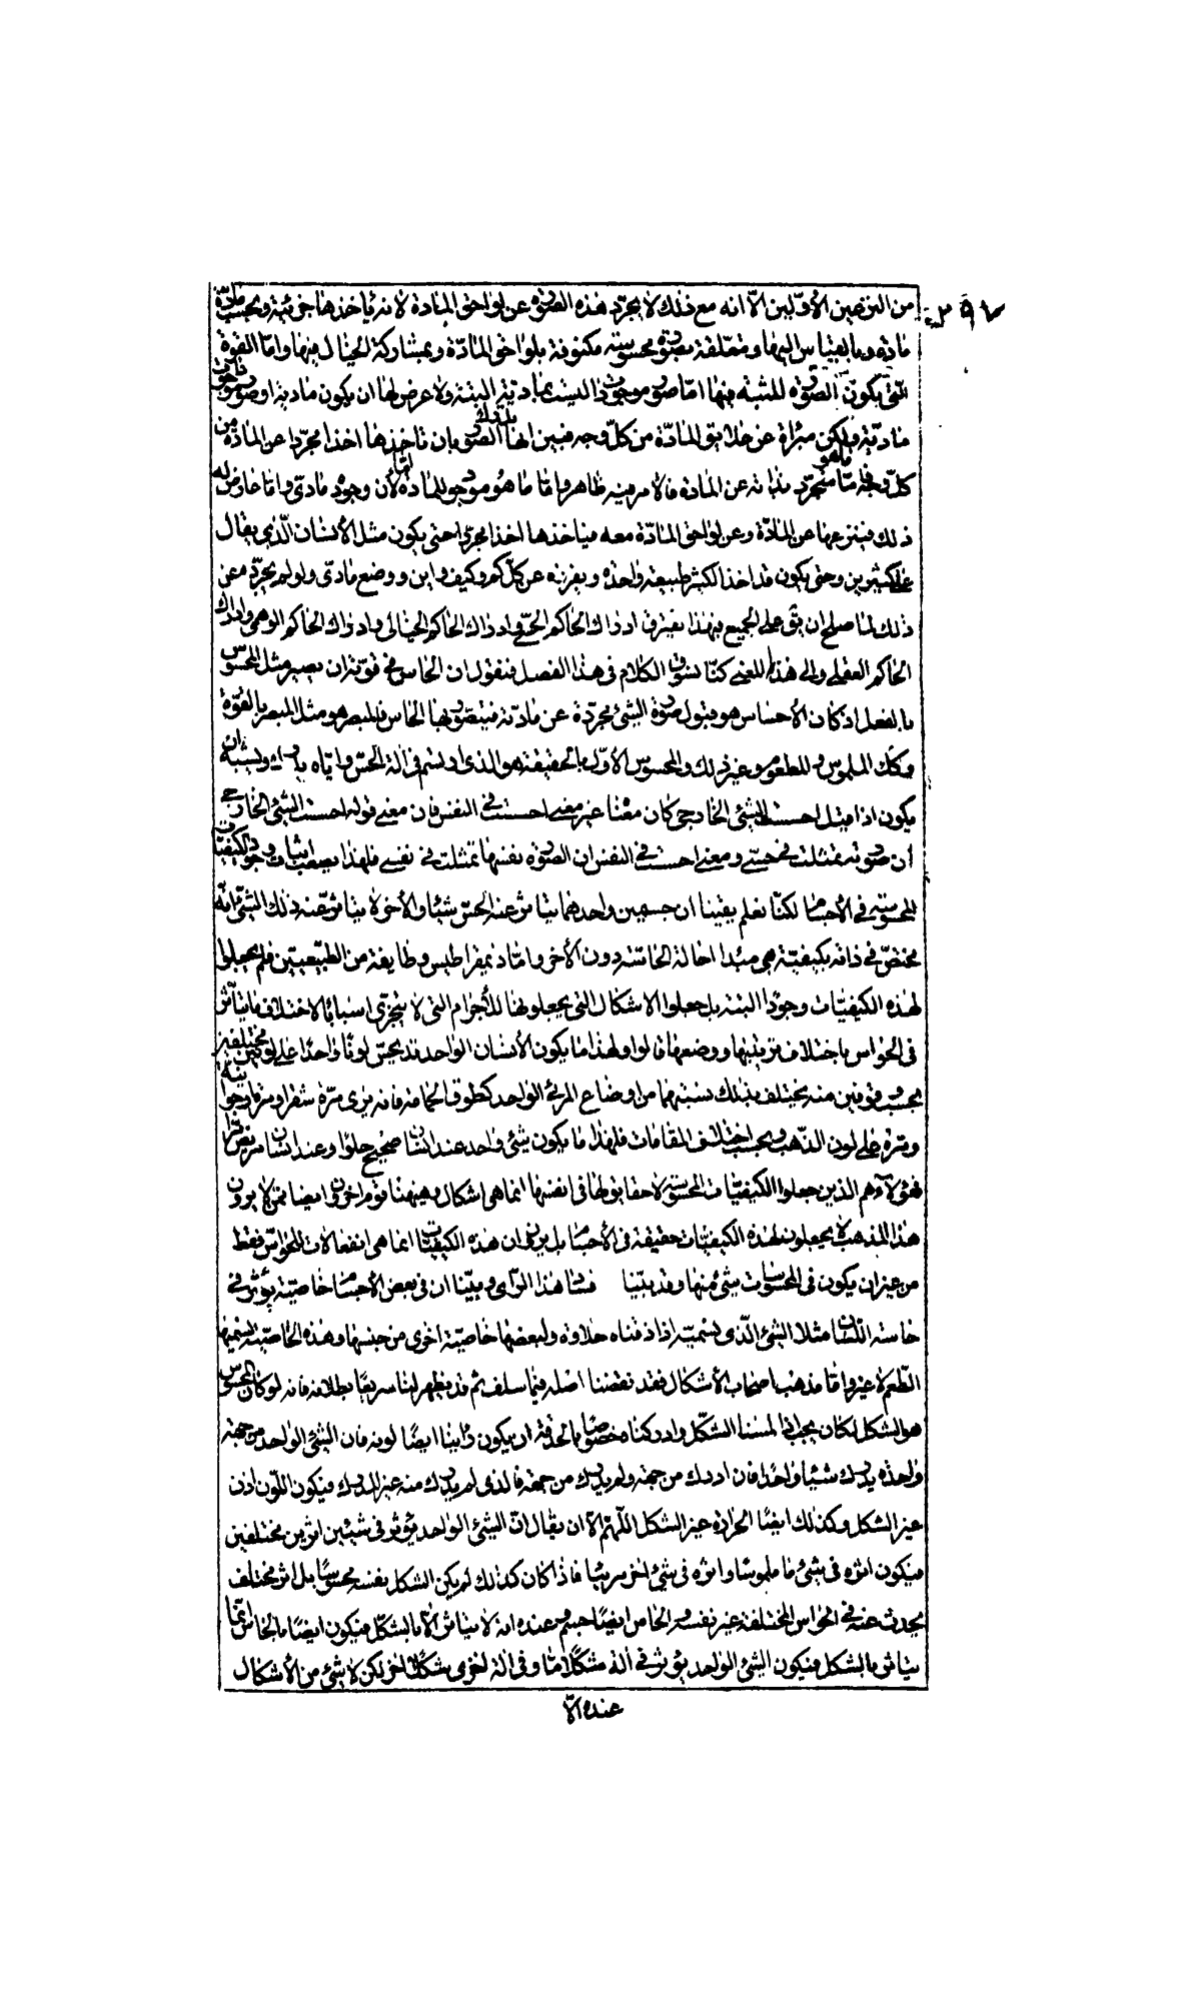 ٢٩٧
من النزعين الأوّلين الّا انه مع ذلك لا يجرّد هذه الصورة عن لواحق المادة لانه يأخذها جزئية وبحسب مادة
مادة وبالقياس اليها ومتعلّقة بصورة محسوسة مكنوفة بلواحق المادّة وبمشاركة الخيال فيها وامّا القوة
التى يكون الصورة المثبتة فيها امّا صور موجودات ليست بمادية البتة ولا عرض لها ان يكون مادية او صور موجودات
مادية ولكن مبرّاة عن علايق المادّة من كلّ وجه فبين انها تدرك الصور بان تاخذها اخذا مجرّدا عن المادة من
كلّ وجه فامّا ما هو متجرّد بذاته عن المادة فالامر فيه ظاهر وامّا ما هو موجود للمادة امّا لأن وجوده مادى وامّا عارض له
ذلك فينتزعها عن المادّة وعن لواحق المادّة معه فياخذها اخذا مجرّدا حتى يكون مثل الأنسان الّذى يقال
على كثيرين وحتى يكون قد اخذ الكثير طبيعة واحدة ويفرزه عن كلّ كم وكيف واين ووضع مادى ولو لم يجرّده عن
ذلك لما صلح ان يق على الجميع فبهذا يفترق ادراك الحاكم الحسّى وادراك الحاكم الخيالى وادراك الحاكم الوهمى وادراك
الحاكم العقلى والى هذا المعنى كنّا نسوق الكلام فى هذا الفصل فنقول ان الحاس فى قوته ان يصير مثل المحسوس
بالفعل اذ كان الأحساس هو قبول صورة الشئ مجرّدة عن مادته فيتصوّر بها الحاس فالمبصر هو مثل المبصر بالقوّة
وكك الملموس والمطعوم وغير ذلك والمحسوس الأوّل بالحقيقة هو الذى ارتسم فى آلة الحسّ وايّاه يدرك ويشبه ان
يكون اذا قيل احسست الشئ الخارجى كان معناه غير معنى احسست فى النفس فان معنى قوله احسست الشئ الخارجى
ان صورته تمثلت فى حسّى ومعنى احسست فى النفس ان الصورة نفسها تمثلت فى نفسى فلهذا يصعب اثبات وجود الكيفيات
المحسوسة فى الأجسام لكنّا نعلم يقينا ان جسمين واحدهما يتاثر عنه الحسّ شيئا والأخر لا يتاثر عنه ذلك الشئ انّه
مختصّ فى ذاته بكيفيّة هى مبدا احالة الحاسّة دون الأخر وامّا ذيمقراطيس وطايفة من الطبيعيّين فلم يجعلوا
لهذه الكيفيّات وجودا البتة بل جعلوا الاشكال التى يجعلونها للأجرام التى لا يتجزى اسبابا لاختلاف ما يتاثّر
فى الحواس باختلاف ترتيبها ووضعها قالوا ولهذا ما يكون الأنسان الواحد قد يحسّ لونا واحدا على لونين مختلفين
بحسب وقوفين منه يختلف بذلك نسبتهما من اوضاع المرئى الواحد كطوق الحمامة فانه يرى مرّة اشقر ومرة ارجوانيّة
ومرة على لون الذهب وبحسب اختلاف المقامات فلهذا ما يكون شئ واحد عند انسان صحيح حلوا وعند انسان مريض مرّا
فهؤلآء هم الذين جعلوا الكيفيّات المحسوسة لا حقايق لها فى انفسها انما هى اشكال وهيهنا قوم اخرون ايضا ممّن لا يرون
هذا المذهب لا يجعلون لهذه الكيفيّات حقيقة فى الأجسام بل يرون ان هذه الكيفيّات انما هى انفعالات للحواسّ فقط
من غير ان يكون فى المحسوسات شئ منها وقد بيّنا فساد هذا الرّاى وبيّنا ان فى بعض الأجسام خاصيّة يؤثر فى
حاسة اللسان مثلا الشئ الّذى نسمّيه اذا ذقناه حلاوة ولبعضها خاصيّة اخرى من جنسها وهذه الخاصيّة نسمّيها
الطّعم لا غير وامّا مذهب اصحاب الأشكال فقد نقضنا اصله فيما سلف ثم قد يظهر لنا سريعا بطلانه فانه لو كان المحسوس
هو الشكل لكان يجب اذا لمسنا الشكل وادركناه خصوصا بالحدقة ان يكون راينا ايضًا لونه فان الشئ الواحد من جهة
واحدة يدرك شيئا واحدا فان ادرك من جهة ولم يدرك من جهة فالذى لم يدرك منه غير المدرك فيكون اللون اذن
غير الشكل وكذلك ايضًا الحرارة غير الشكل اللّهمّ الّا ان يقال انّ الشئ الواحد يؤثر فى شيئين اثرين مختلفين
فيكون اثره فى شئ ما ملموسا واثره فى شئ اخر مرئيا فاذا كان كذلك لم يكن الشكل نفسه محسوسًا بل اثر مختلف
يحدث عنه فى الحواس المختلفة غير نفسه والحاس ايضا جسم وعنده انه لا يتاثر الّا بالشكل فيكون ايضًا الحاس انّما
يتاثر بالشكل فيكون الشئ الواحد يؤثر فى آلة شكلا ما وفى آلة اخرى شكلا اخر لكن لا شئ من الأشكال
عنده الّا